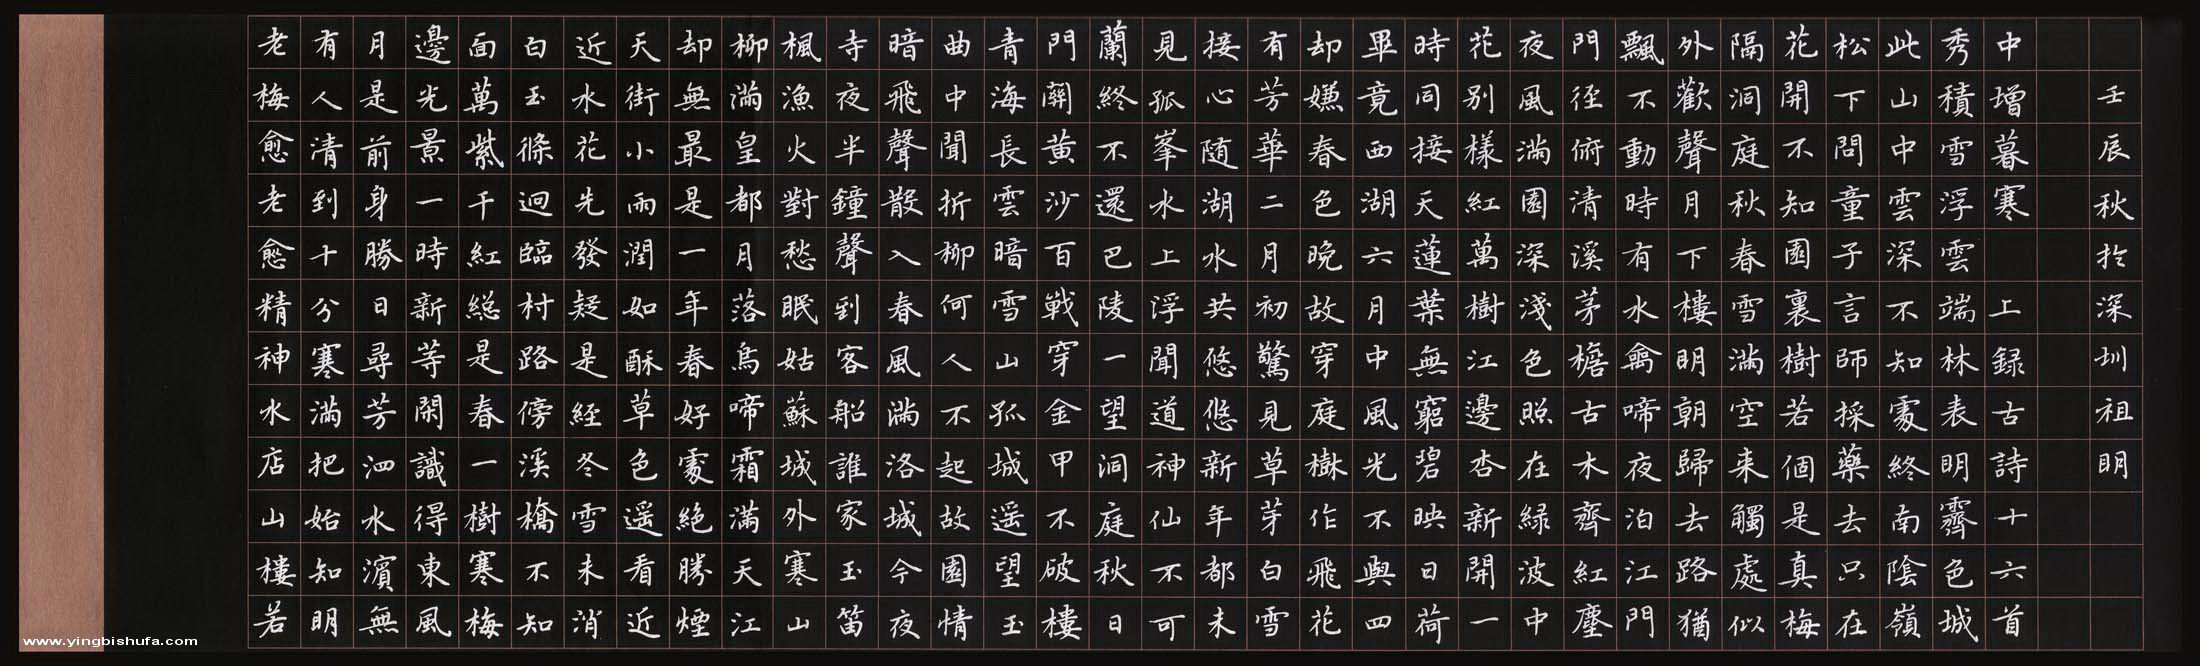 老梅愈老愈精神水店山樓若
有人清到十分寒滿把始知明
月是前身勝日尋芳泗水濱無
邊光景一時新等閑識得東風
面萬紫千紅總是春一樹寒梅
白玉條迥臨村路傍溪橋不知
近水花先發疑是經冬雪未消
天街小雨潤如酥草色遥看近
却無最是一年春好處絕勝煙
柳滿皇都月落烏啼霜滿天江
楓漁火對愁眠姑蘇城外寒山
寺夜半鐘聲到客船誰家玉笛
暗飛聲散入春風滿洛城今夜
曲中聞折柳何人不起故園情
青海長雲暗雪山孤城遥望玉
門關黃沙百戰穿金甲不破樓
蘭終不還巴陵一望洞庭秋日
見孤峯水上浮聞道神仙不可
接心随湖水共悠悠新年都未
有芳華二月初驚見草芽白雪
却嫌春色晚故穿庭樹作飛花
畢竟西湖六月中風光不與四
時同接天蓮葉無窮碧映日荷
花別樣紅萬樹江邊杏新開一
夜風滿園深淺色照在綠波中
門徑俯清溪茅檐古木齊紅塵
飄不動時有水禽啼夜泊江門
外歡聲月下樓明朝歸去路猶
隔洞庭秋春雪滿空来觸處似
花開不知園裏樹若個是真梅
松下問童子言師採藥去只在
此山中雲深不知處終南陰嶺
秀積雪浮雲端林表明霽色城
中增暮寒 上録古詩十六首
壬辰秋於深圳祖明
www.yingbishufa.com